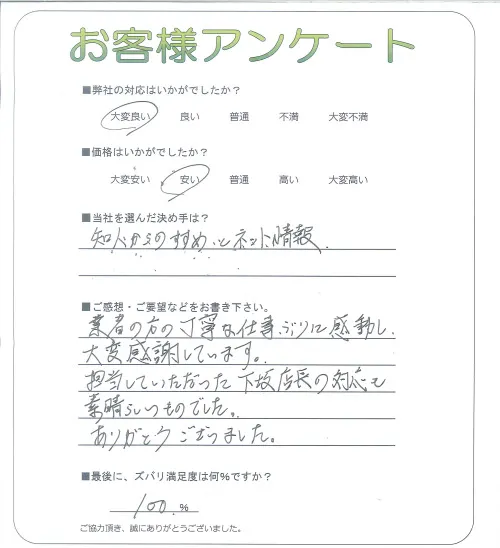 お客様アンケート
■弊社の対応はいかがでしたか?
大変良い 良い 普通 不満 大変不満
■価格はいかがでしたか?
大変安い 安い 普通 高い 大変高い
■当社を選んだ決め手は?
知人からのすすめ、とネット情報.
■ご感想・ご要望などをお書き下さい。
業者の方の丁寧な仕事ぶりに感動し、
大変感謝しています。
担当していただった下坂店長の対応も
素晴らしいものでした。
ありがとうございました。
■最後に、ズバリ満足度は何%ですか?
100.%
ご協力頂き、誠にありがとうございました。